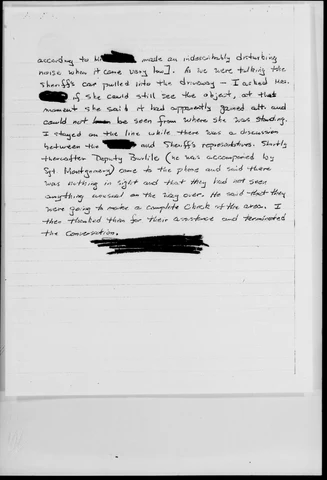 according to h made an indescribably disturbing
noise when it came very low]. As we were talking the
Sheriff's car pulled into the driveway – I asked Mrs.
if she could still see the object, at that
moment she said it had apparently gained alt. and
could not be seen from where she was standing.
I stayed on the line while there was a discussion
between the and Sheriff's representatives. Shortly
thereafter Deputy (he was accompanied by
Sgt. Montgomery) came to the phone and said there
was nothing in sight and that they had not seen
anything unusual on the way over. He said that they
were going to make a complete check of the area. I
then thanked them for their assistance and terminated
the conversation.